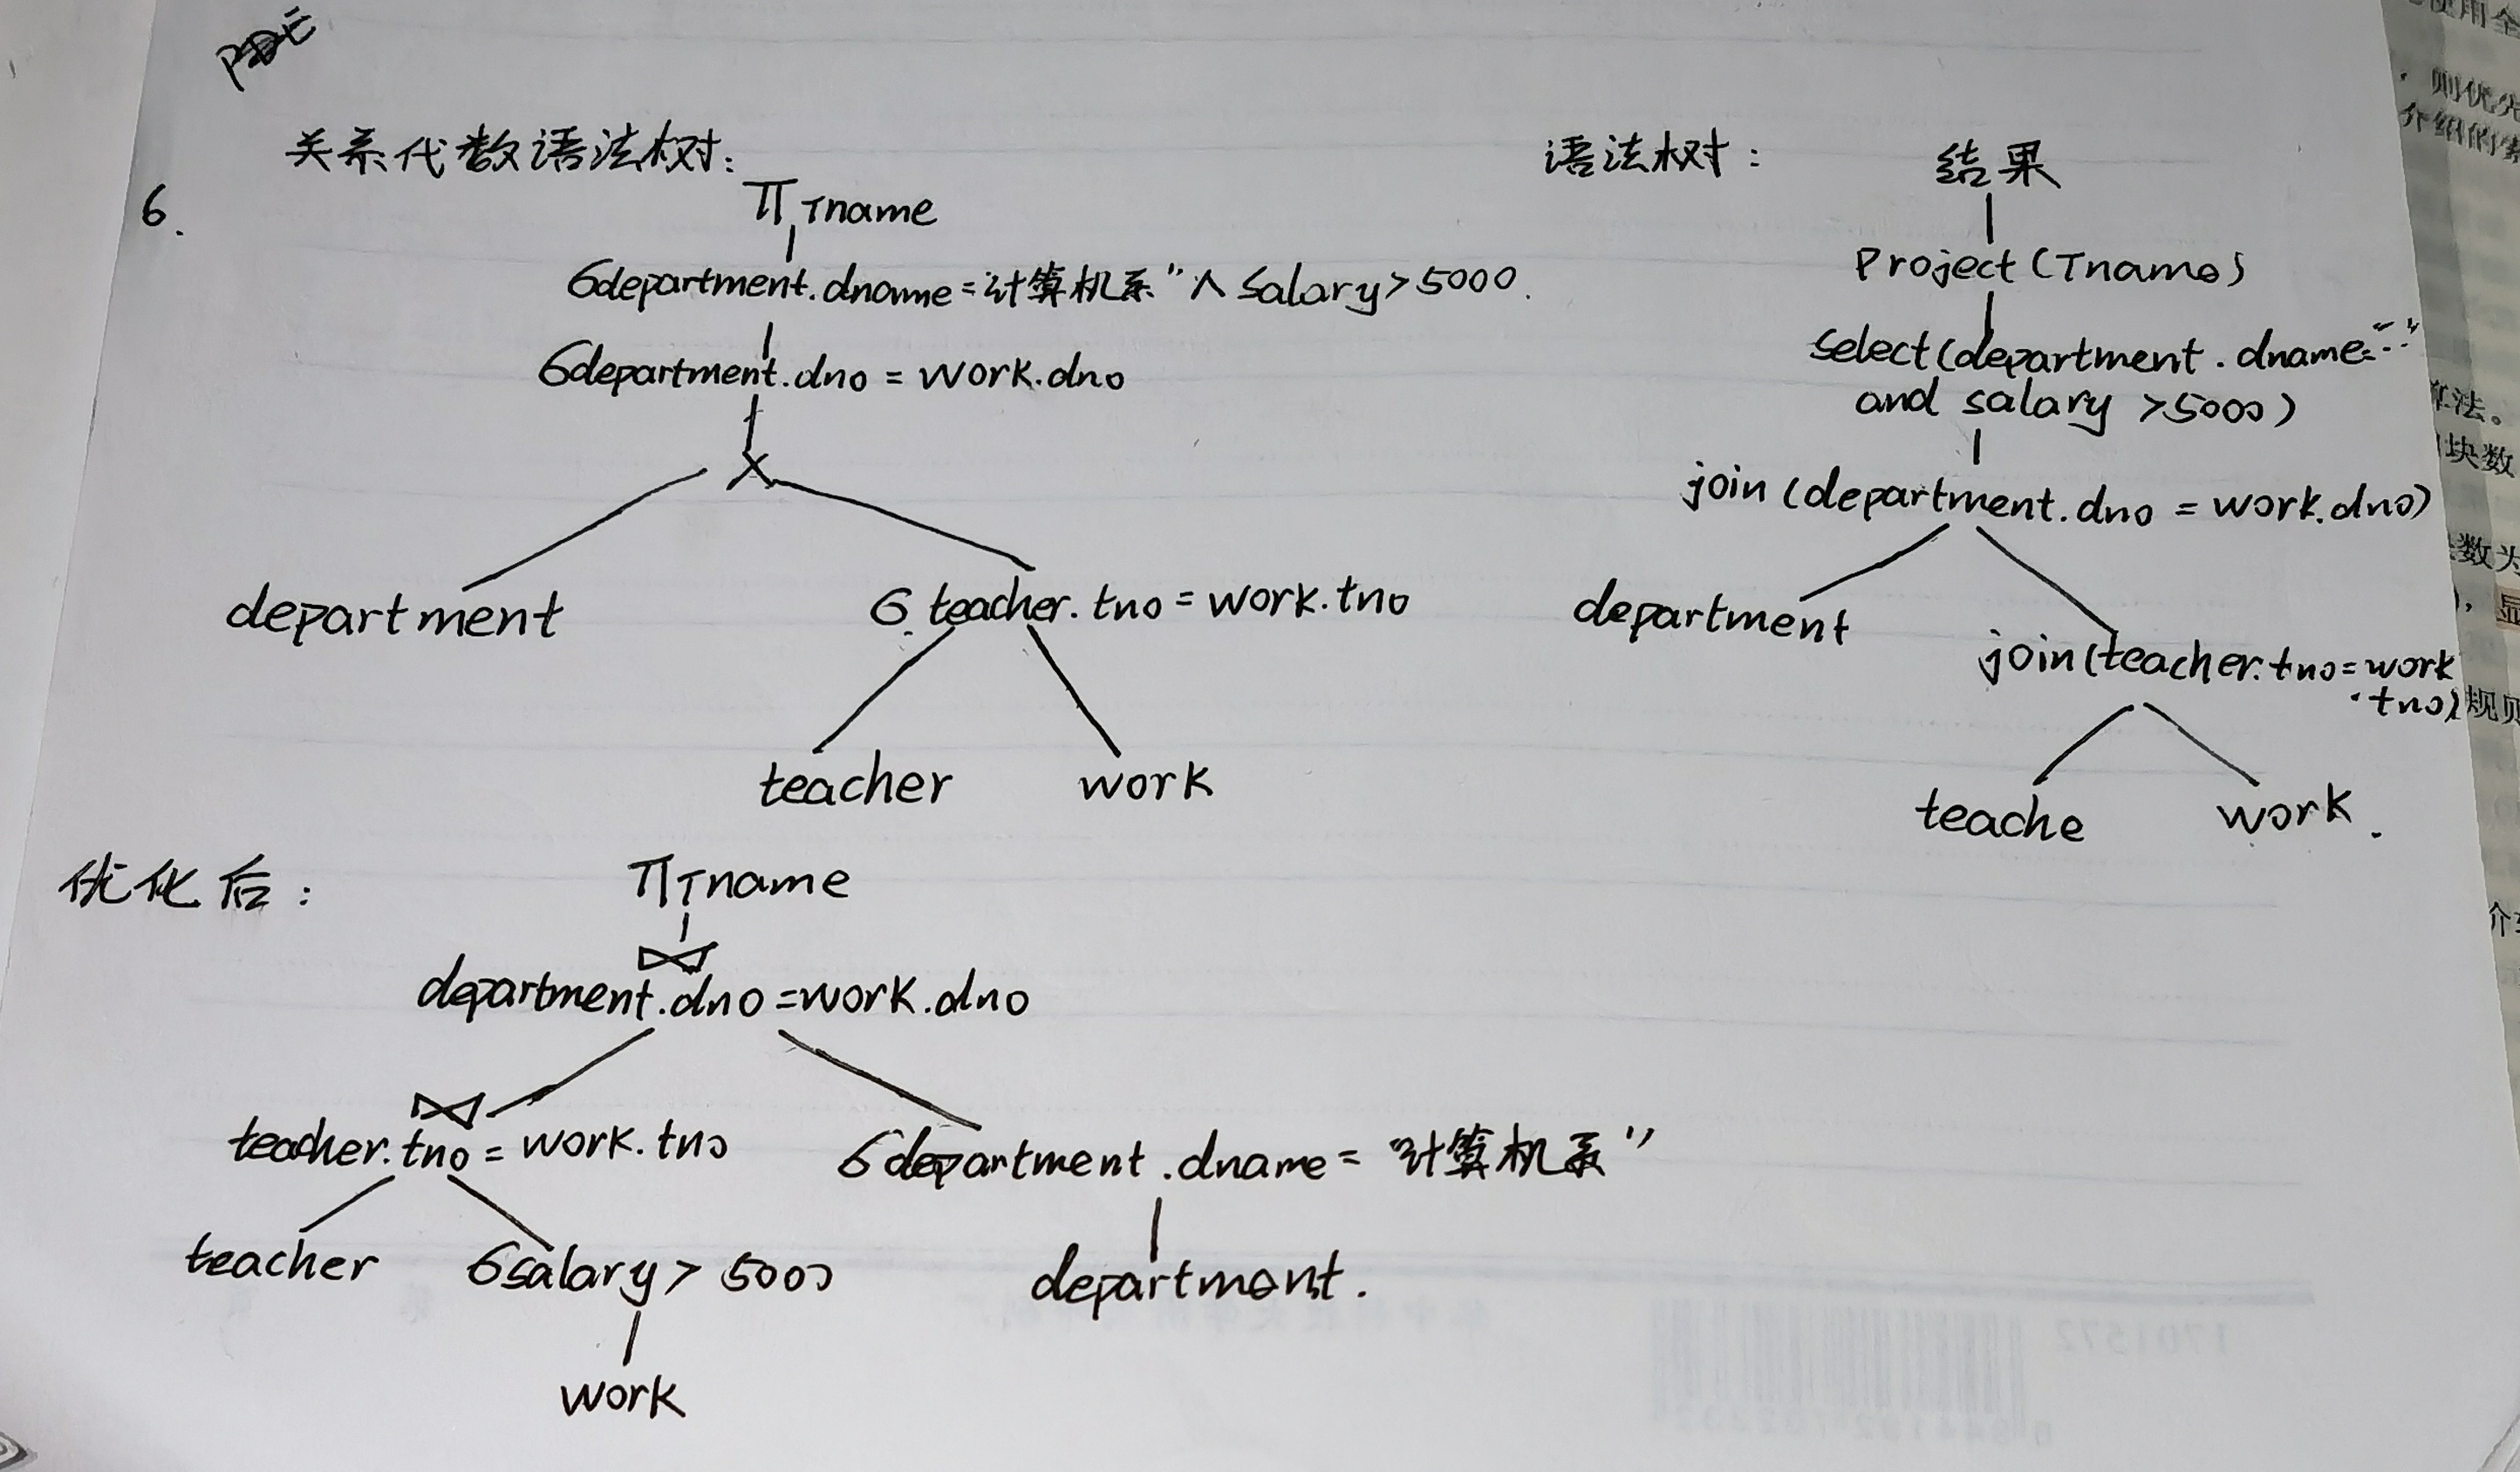 关系代数语法树:
6.
π Tname
6department.dname=计算机系"∧ salary>5000.
6department.dno = work.dno
×
department
6 teacher.tno = work.tno
teacher work
语法树:
结果
Project (Tname)
select(department.dname=“..”
and salary >5000)
join (department.dno = work.dno)
department
join(teacher.tno=work
.tno)
teache work.
优化后:
πTname
⋈
department.dno =work.dno
⋈
teacher.tno = work.tno
6department.dname= “计算机系”
teacher 6salary > 5000
department.
work
使用全
则优先
介绍的
算法。
块数
数为
规则
1701572